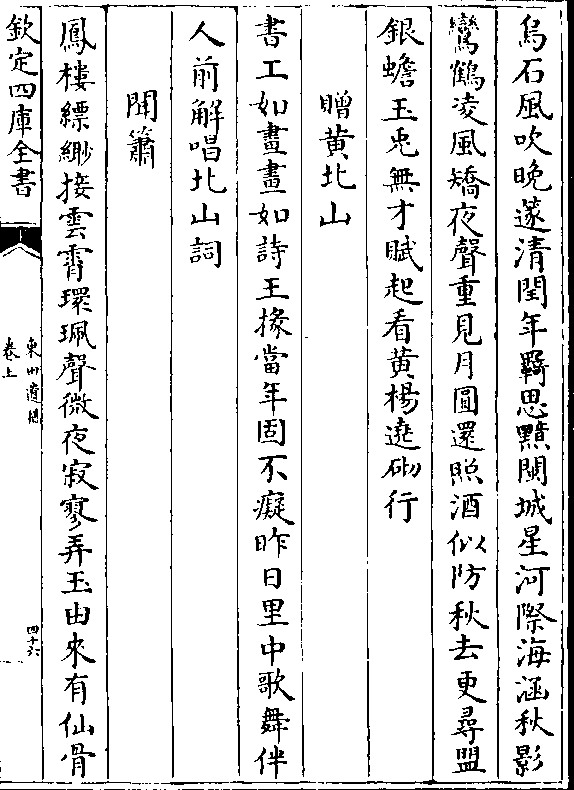 烏石風吹晚邃清閏年羇思黯闉城星河際海涵秋影
鸞鶴凌風矯夜聲重見月圓還照酒似防秋去更尋盟
銀蟾玉兎無才賦起看黃楊遶砌行
贈黃北山
書工如畫畫如詩王掾當年固不癡昨日里中歌舞伴
人前解唱北山詞
聞簫
鳳樓縹緲接雲霄環珮聲微夜寂寥弄玉由來有仙骨
欽定四庫全書
卷上
四十六